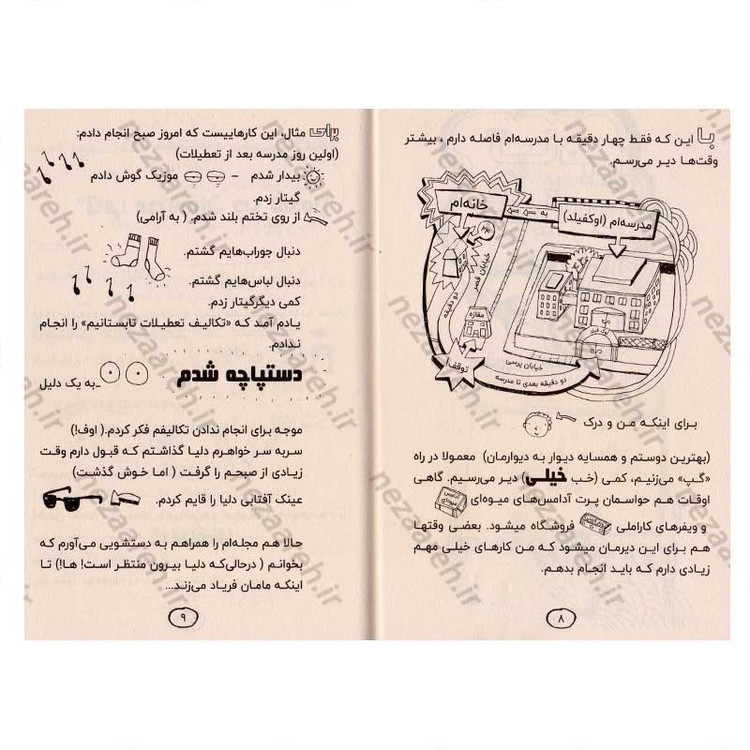 با این که فقط چهار دقیقه با مدرسه‌ام فاصله دارم ، بیشتر
وقت‌ها دیر می‌رسم.
خانه‌ام
به
مدرسه‌ام (اوکفیلد)
خیابان قصر
دو دقیقه
مغازه
توقف!
خیابان پرسی
دو دقیقه بعدی تا مدرسه
برای اینکه من و درک
(بهترین دوستم و همسایه دیوار به دیوارمان) معمولا در راه
«گپ» می‌زنیم، کمی (خب خیلی) دیر می‌رسیم. گاهی
اوقات هم حواسمان پرت آدامس‌های میوه‌ای
و ویفرهای کاراملی فروشگاه میشود. بعضی وقتها
هم برای این دیرمان میشود که من کارهای خیلی مهم
زیادی دارم که باید انجام بدهم.
۸
برای مثال، این کارهاییست که امروز صبح انجام دادم:
(اولین روز مدرسه بعد از تعطیلات)
بیدار شدم – موزیک گوش دادم
گیتار زدم.
از روی تختم بلند شدم. ( به آرامی)
دنبال جوراب‌هایم گشتم.
دنبال لباس‌هایم گشتم.
کمی دیگرگیتار زدم.
یادم آمد که «تکالیف تعطیلات تابستانیم» را انجام
ندادم.
دستپاچه شدم
_به یک دلیل
موجه برای انجام ندادن تکالیفم فکر کردم.( اوف!)
سربه سر خواهرم دلیا گذاشتم که قبول دارم وقت
زیادی از صبحم را گرفت ( اما خوش گذشت)
عینک آفتابی دلیا را قایم کردم.
حالا هم مجله‌ام را همراهم به دستشویی می‌آورم که
بخوانم ( درحالی‌که دلیا بیرون منتظر است! ها!) تا
اینکه مامان فریاد می‌زند...
۹
nezaareh.ir